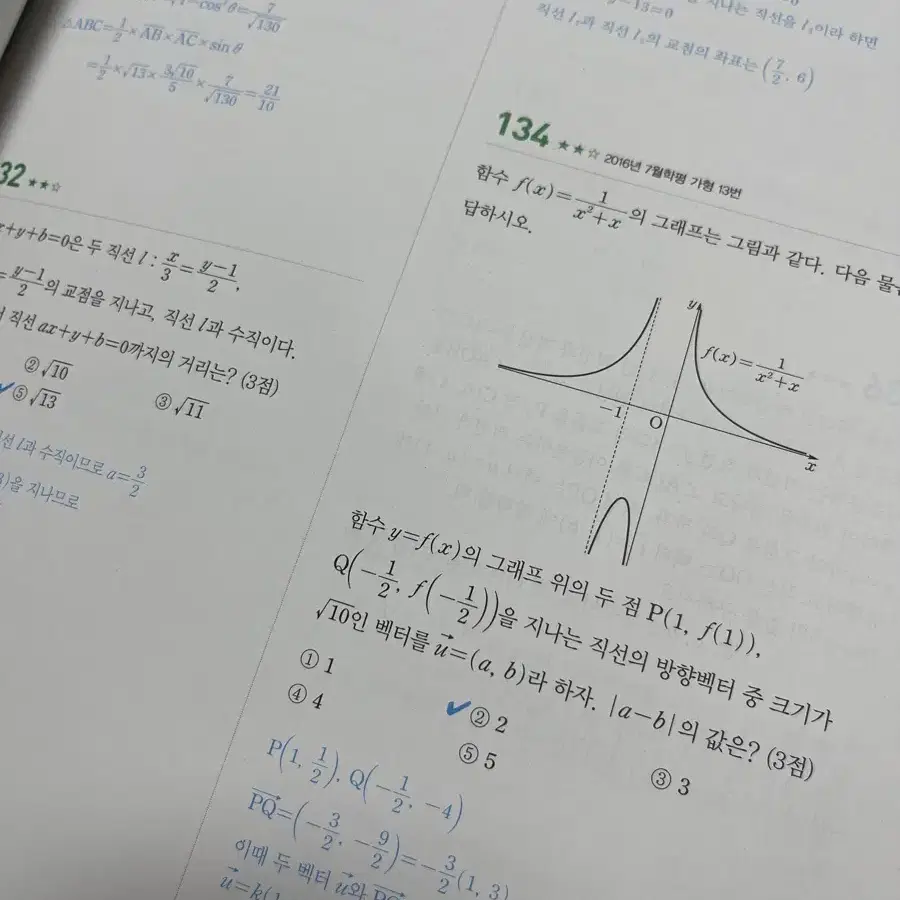 cos²θ = 7/√130
△ABC = 1/2 × AB × AC × sin θ
= 1/2 × √13 × 3√10/5 × 7/√130 = 21/10
32 ★★☆
x+y+b=0은 두 직선 l : x/3 = y-1/2,
= y-1/2의 교점을 지나고, 직선 l과 수직이다.
직선 ax+y+b=0까지의 거리는? (3점)
② √10
③ √11
⑤ √13
선 l과 수직이므로 a = 3/2
)을 지나므로
-13=0
지나는 직선을 이라 하면
직선 과 직선 의 교점의 좌표는 (7/2, 6)
134 ★★☆ 2016년 7월학평 가형 13번
함수 f(x) = 1/x²+x의 그래프는 그림과 같다. 다음 물
답하시오.
y
f(x) = 1/x²+x
-1
O
x
함수 y=f(x)의 그래프 위의 두 점 P(1, f(1)),
Q(-1/2, f(-1/2))을 지나는 직선의 방향벡터 중 크기가
√10인 벡터를 u→=(a, b)라 하자. |a-b|의 값은? (3점)
① 1
② 2
③ 3
④ 4
⑤ 5
P(1, 1/2), Q(-1/2, -4)
PQ→ = (-3/2, -9/2) = -3/2(1, 3)
이때 두 벡터 u→와 PQ→
u→=k(1